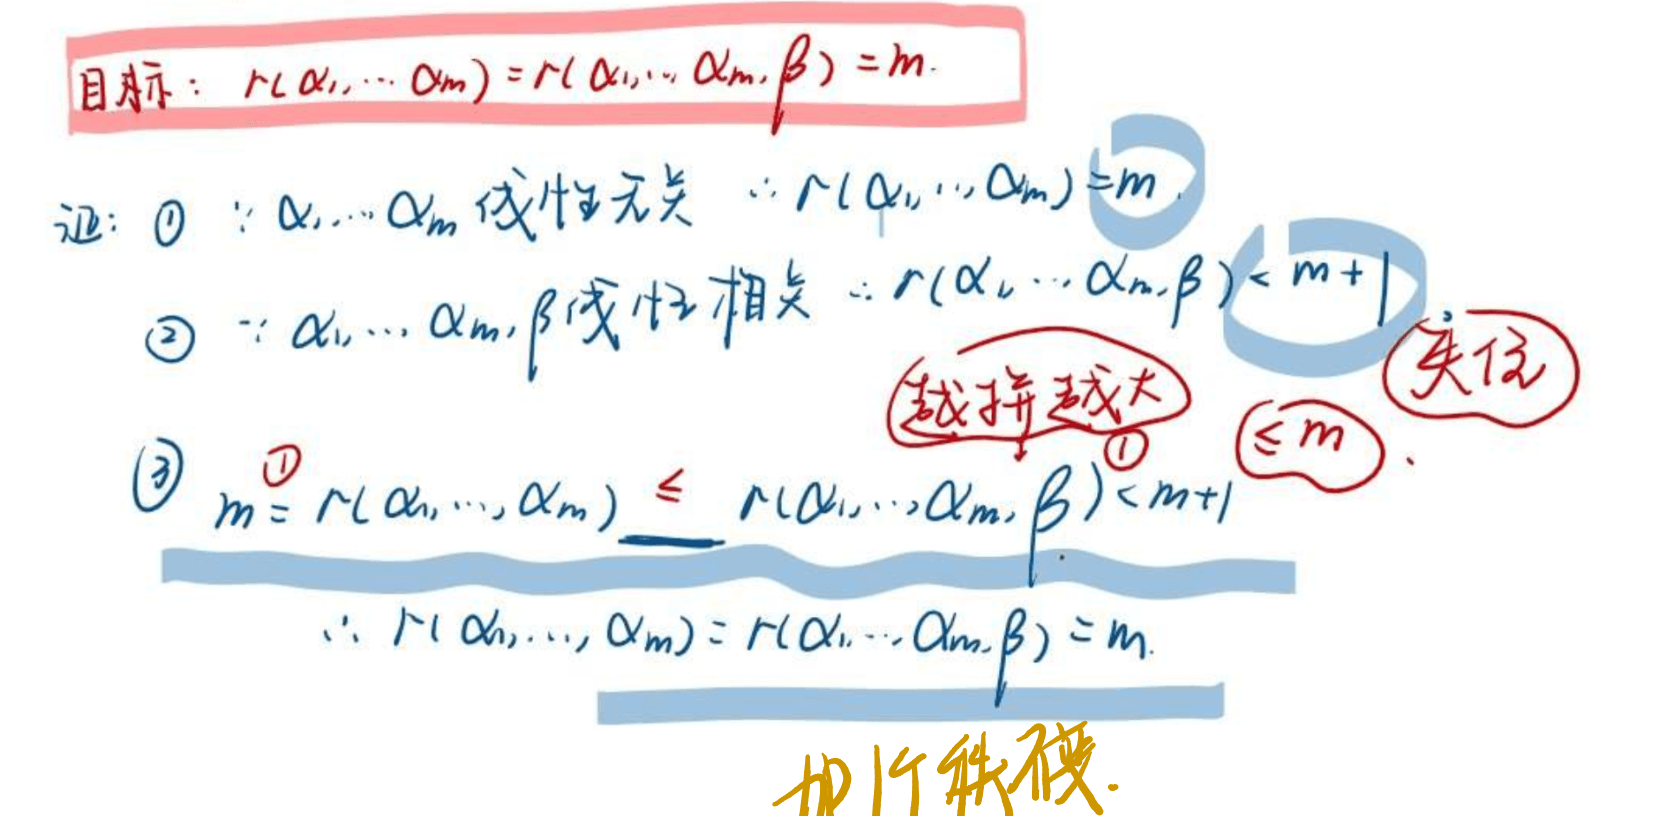 目标: r(α₁,…αm)=r(α₁,…,αm,β)=m.
证: ① ∵ α₁,…αm 线性无关 ∴ r(α₁,…,αm)=m.
② ∵ α₁,…αm,β线性相关 ∴ r(α₁,…αm,β)<m+1
失位
越拼越大
≤m.
① ①
③ m=r(α₁,…,αm) ≤ r(α₁,…,αm,β)<m+1
∴ r(α₁,…,αm)=r(α₁…αm,β)=m.
加行秩不变.